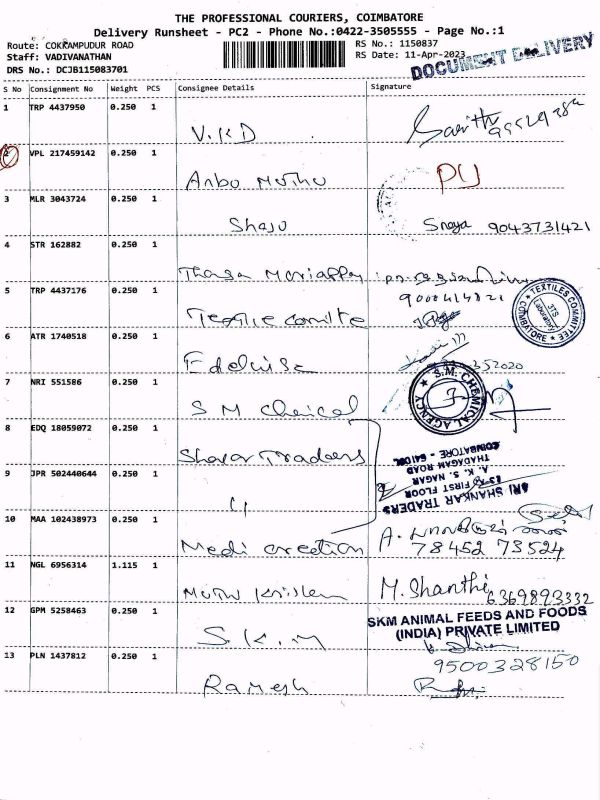 THE PROFESSIONAL COURIERS, COIMBATORE
Delivery Runsheet - PC2 - Phone No.:0422-3505555 - Page No.:1
Route: COKRAMPUDUR ROAD
RS No.: 1150837
Staff: VADIVANATHAN
RS Date: 11-Apr-2023
DRS No.: DCJB115083701
DOCUMENT DELIVERY
S No Consignment No Weight PCS Consignee Details Signature
1 TRP 4437950 0.250 1
V.K.D
2 VPL 217459142 0.250 1
Anbu Muthu PU
3 MLR 3043724 0.250 1
Shaju 9043731421
4 STR 162882 0.250 1
5 TRP 4437176 0.250 1
TEXTILES COMMITTEE COIMBATORE
6 ATR 1740518 0.250 1
7 NRI 551586 0.250 1
S M
S.M. CHEMICAL AGENCY
8 EDQ 18059072 0.250 1
Traders
SRI SHANKAR TRADERS
FIRST FLOOR
A. K. S. NAGAR
THADAGAM ROAD
COIMBATORE
9 JPR 502440644 0.250 1
10 MAA 102438973 0.250 1
Medi creation 78452 73524
11 NGL 6956314 1.115 1
M. Shanthi
6369893332
12 GPM 5258463 0.250 1
S.K.M
SKM ANIMAL FEEDS AND FOODS
(INDIA) PRIVATE LIMITED
13 PLN 1437812 0.250 1
9500328150
Ramesh